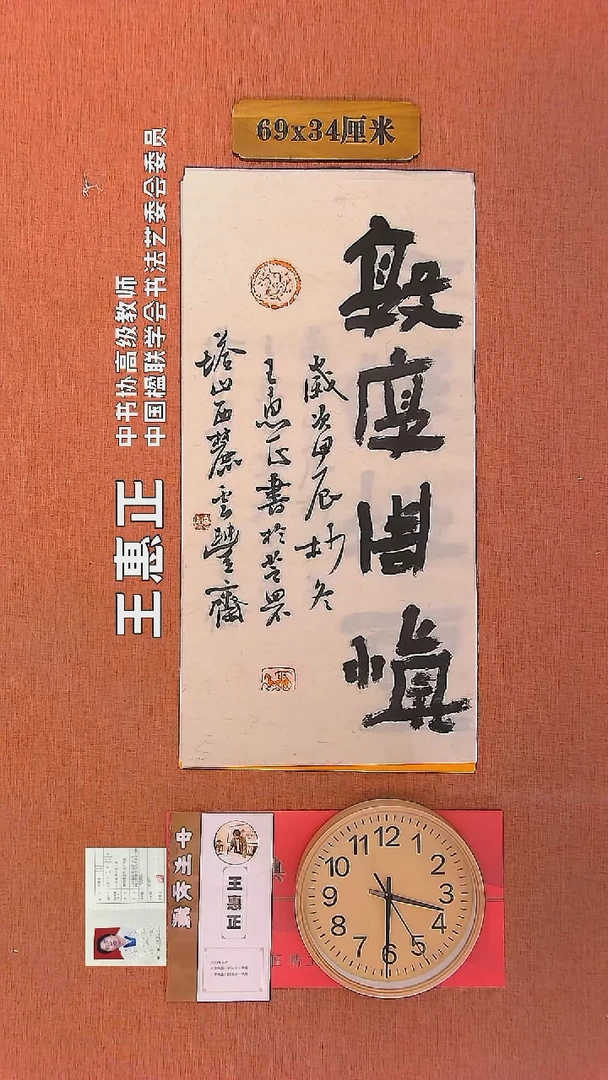 69x34厘米
敦厚周慎
歲次甲辰杪冬
王惠正書於莒界
塔山西麓雲豐齋
中国楹联学会书法艺委会委员
中书协高级教师
王惠正
中州收藏
王惠正
12
1
2
3
4
5
6
7
8
9
10
11